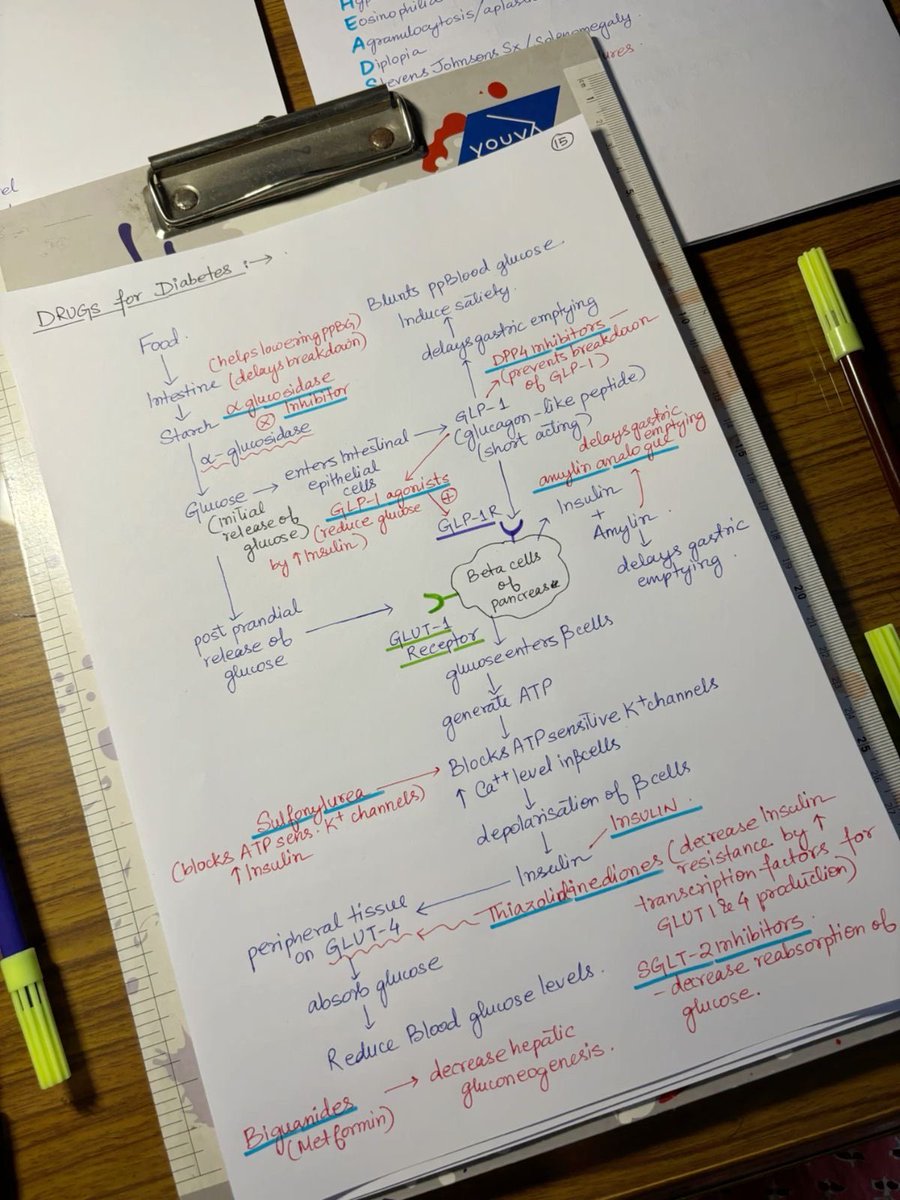 Eosinophilia
Agranulocytosis/aplas
Diplopia
Stevens Johnsons Sx/Splenomegaly
ures.
el
YOUVA
15
DRUGS for Diabetes :→
Food
↓
Intestine
↓
Starch
(helps lowering PPBG)
(delays breakdown)
α glucosidase
inhibitor
α-glucosidase
Glucose → enters intestinal →
epithelial
cells
(initial
release of
glucose)
Blunts ppBlood glucose
Induce satiety.
↑
delays gastric emptying
↑
DPP4 inhibitors –
(prevents breakdown
of GLP-1)
GLP-1
(glucagon-like peptide)
(short acting)
GLP-1 agonists
(reduce glucose
by ↑ Insulin)
+
GLP-1R
delays gastric
emptying
amylin analogue
Insulin
+
Amylin
↓
delays gastric
emptying.
Beta cells
of
pancrease
post prandial
release of
glucose
→
GLUT-1
Receptor
glucose enters βcells
↓
generate ATP
↓
Blocks ATP sensitive K+ channels
↑ Ca++ level in βcells
↓
depolarisation of βcells
↓
Insulin
INSULIN.
Sulfonylurea
(blocks ATP sens. K+ channels)
↑ Insulin
Thiazolidinediones (decrease Insulin
resistance by ↑
transcription factors for
GLUT 1 & 4 production)
peripheral tissue
on GLUT-4
↓
absorb glucose
↓
Reduce Blood glucose levels.
SGLT-2 inhibitors.
– decrease reabsorption of
glucose.
Biguanides
(Metformin)
→ decrease hepatic
gluconeogenesis.